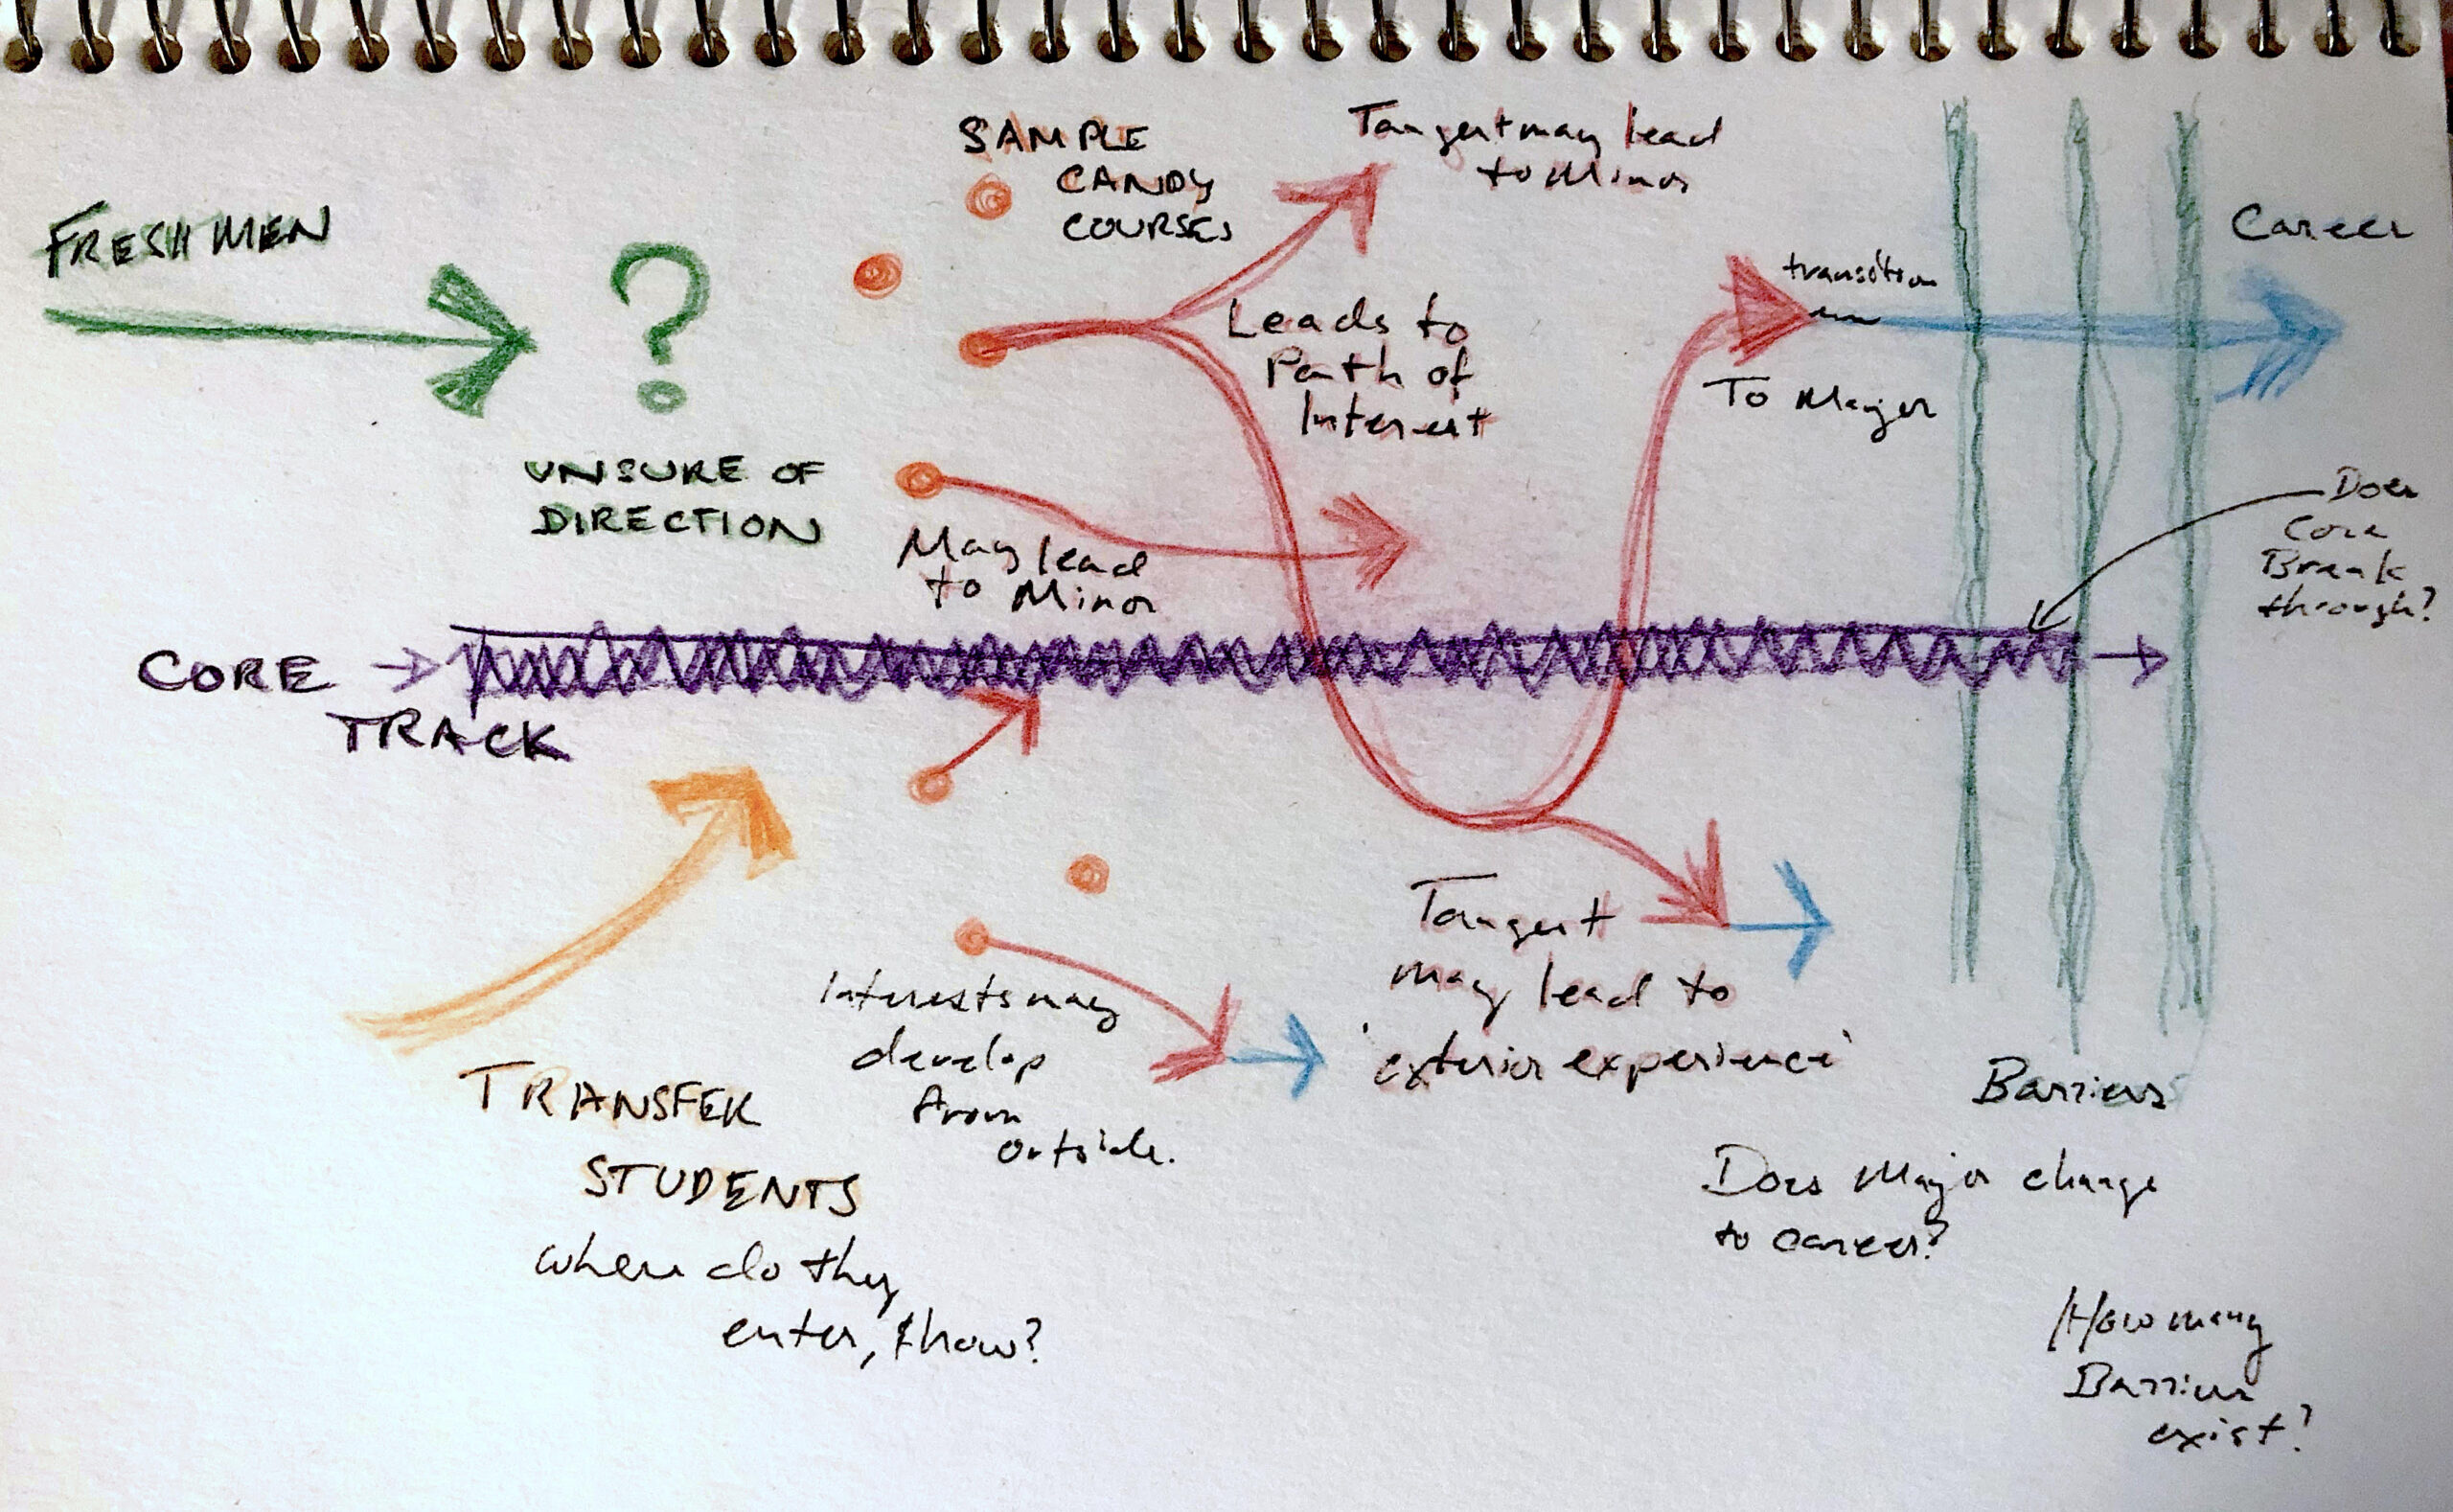 FRESHMEN
?
UNSURE OF
DIRECTION
SAMPLE
CANDY
COURSES
Tangent may lead
to Minor
Leads to
Path of
Interest
May lead
to Minor
transition
To Major
Career
Does
Core
Break
through?
CORE
TRACK
TRANSFER
STUDENTS
where do they
enter, & how?
Interests may
develop
from
outside.
Tangent
may lead to
'exterior experience'
Barriers
Does Major change
to career?
How many
Barriers
exist?